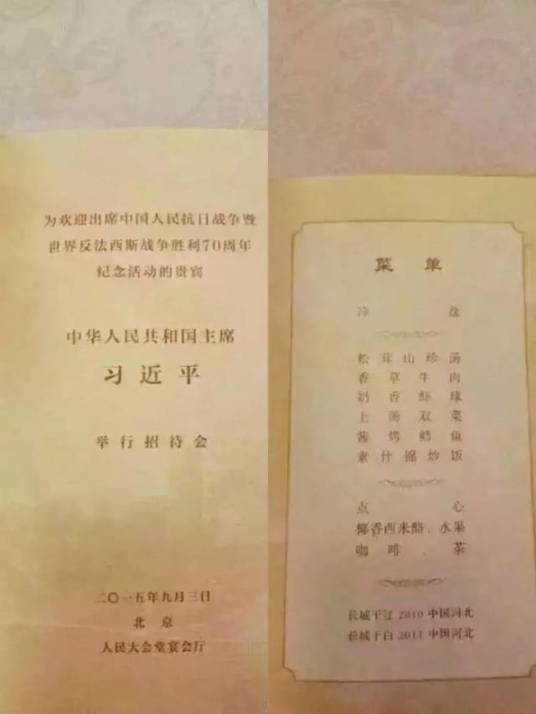 为欢迎出席中国人民抗日战争暨
世界反法西斯战争胜利70周年
纪念活动的贵宾
中华人民共和国主席
习近平
举行招待会
二〇一五年九月三日
北京
人民大会堂宴会厅
菜单
冷盘
松茸山珍汤
香草牛肉
奶香虾球
上汤双菜
酱烤鳕鱼
素什锦炒饭
点心
椰香西米酪、水果
咖啡、茶
长城干红 2010 中国河北
长城干白 2011 中国河北